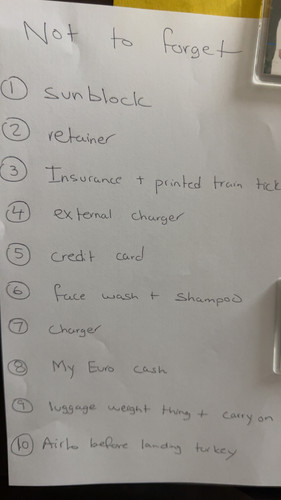 Not to forget
① sunblock
② retainer
③ Insurance + printed train tick
④ external charger
⑤ credit card
⑥ face wash + shampoo
⑦ charger
⑧ My Euro cash
⑨ luggage weight thing + carry on
⑩ before landing turkey